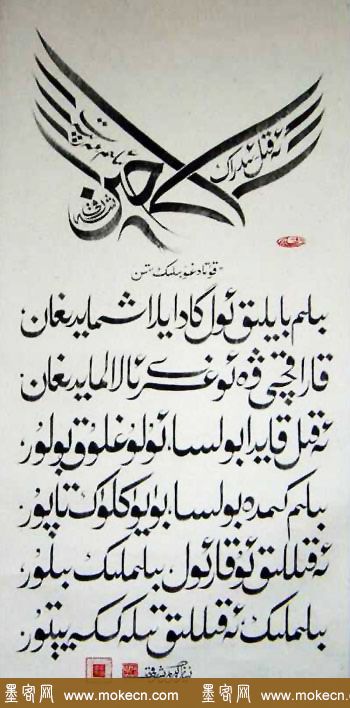 ئەقىل ئىدراك
لاچىن
قۇتادغۇبىلىكتىن
بىلىم بايلىق ئول گادايلاشمايدىغان،
قاراقچى ۋە ئوغرى ئالالمايدىغان.
ئەقىل قايدا بولسا، ئۇلۇغلۇق بولۇر،
بىلىم كىمدە بولسا، بۈيۈكلۈك تاپۇر.
ئەقىللىق ئۇقار ئول، بىلىملىك بىلۇر،
بىلىملىك ئەقىللىق تىلەككە يېتۇر.
墨客网 www.mokecn.com 墨客网 www.mokecn.com